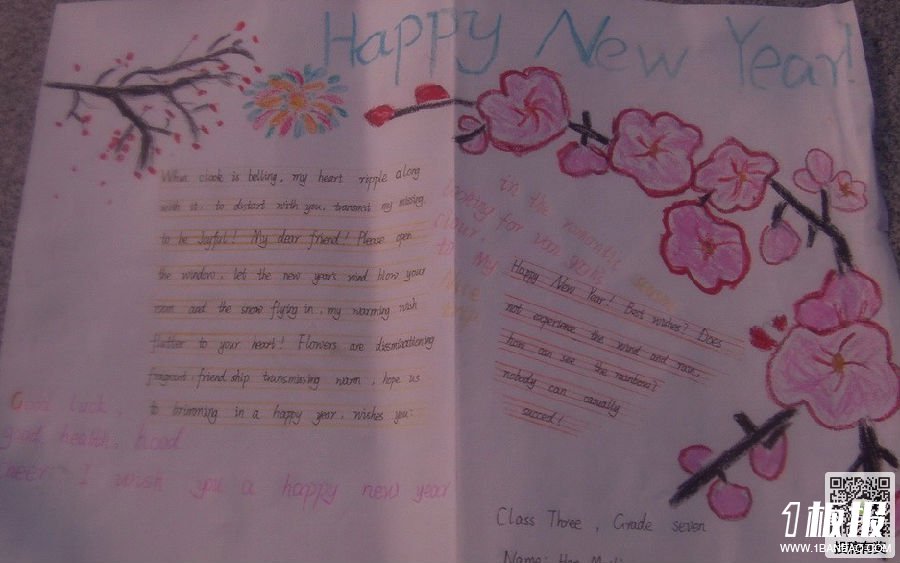 Happy New Year!
When clock is belling, my heart ripple along
with it. to distort with you, transmit my missing.
to be Joyful! My dear friend! Please open
the window, let the new year's wind blow your
room and the snow flying in, my warming wish
flutter to your heart! Flowers are disseminating
fragrant. friend ship transmissing warm, hope us
to brimming in a happy year, wishes you:
Good luck,
good health, hood
cheer. I wish you a happy new year
in the romantic
season
looking for your
your,
to My
nice
trip
Happy New Year! Best wishes? Does
not experience the wind and rain,
how can see the rainbow?
nobody can casually
succed!
Class Three, Grade seven
Name:
1板报
WWW.1BANBAO.COM